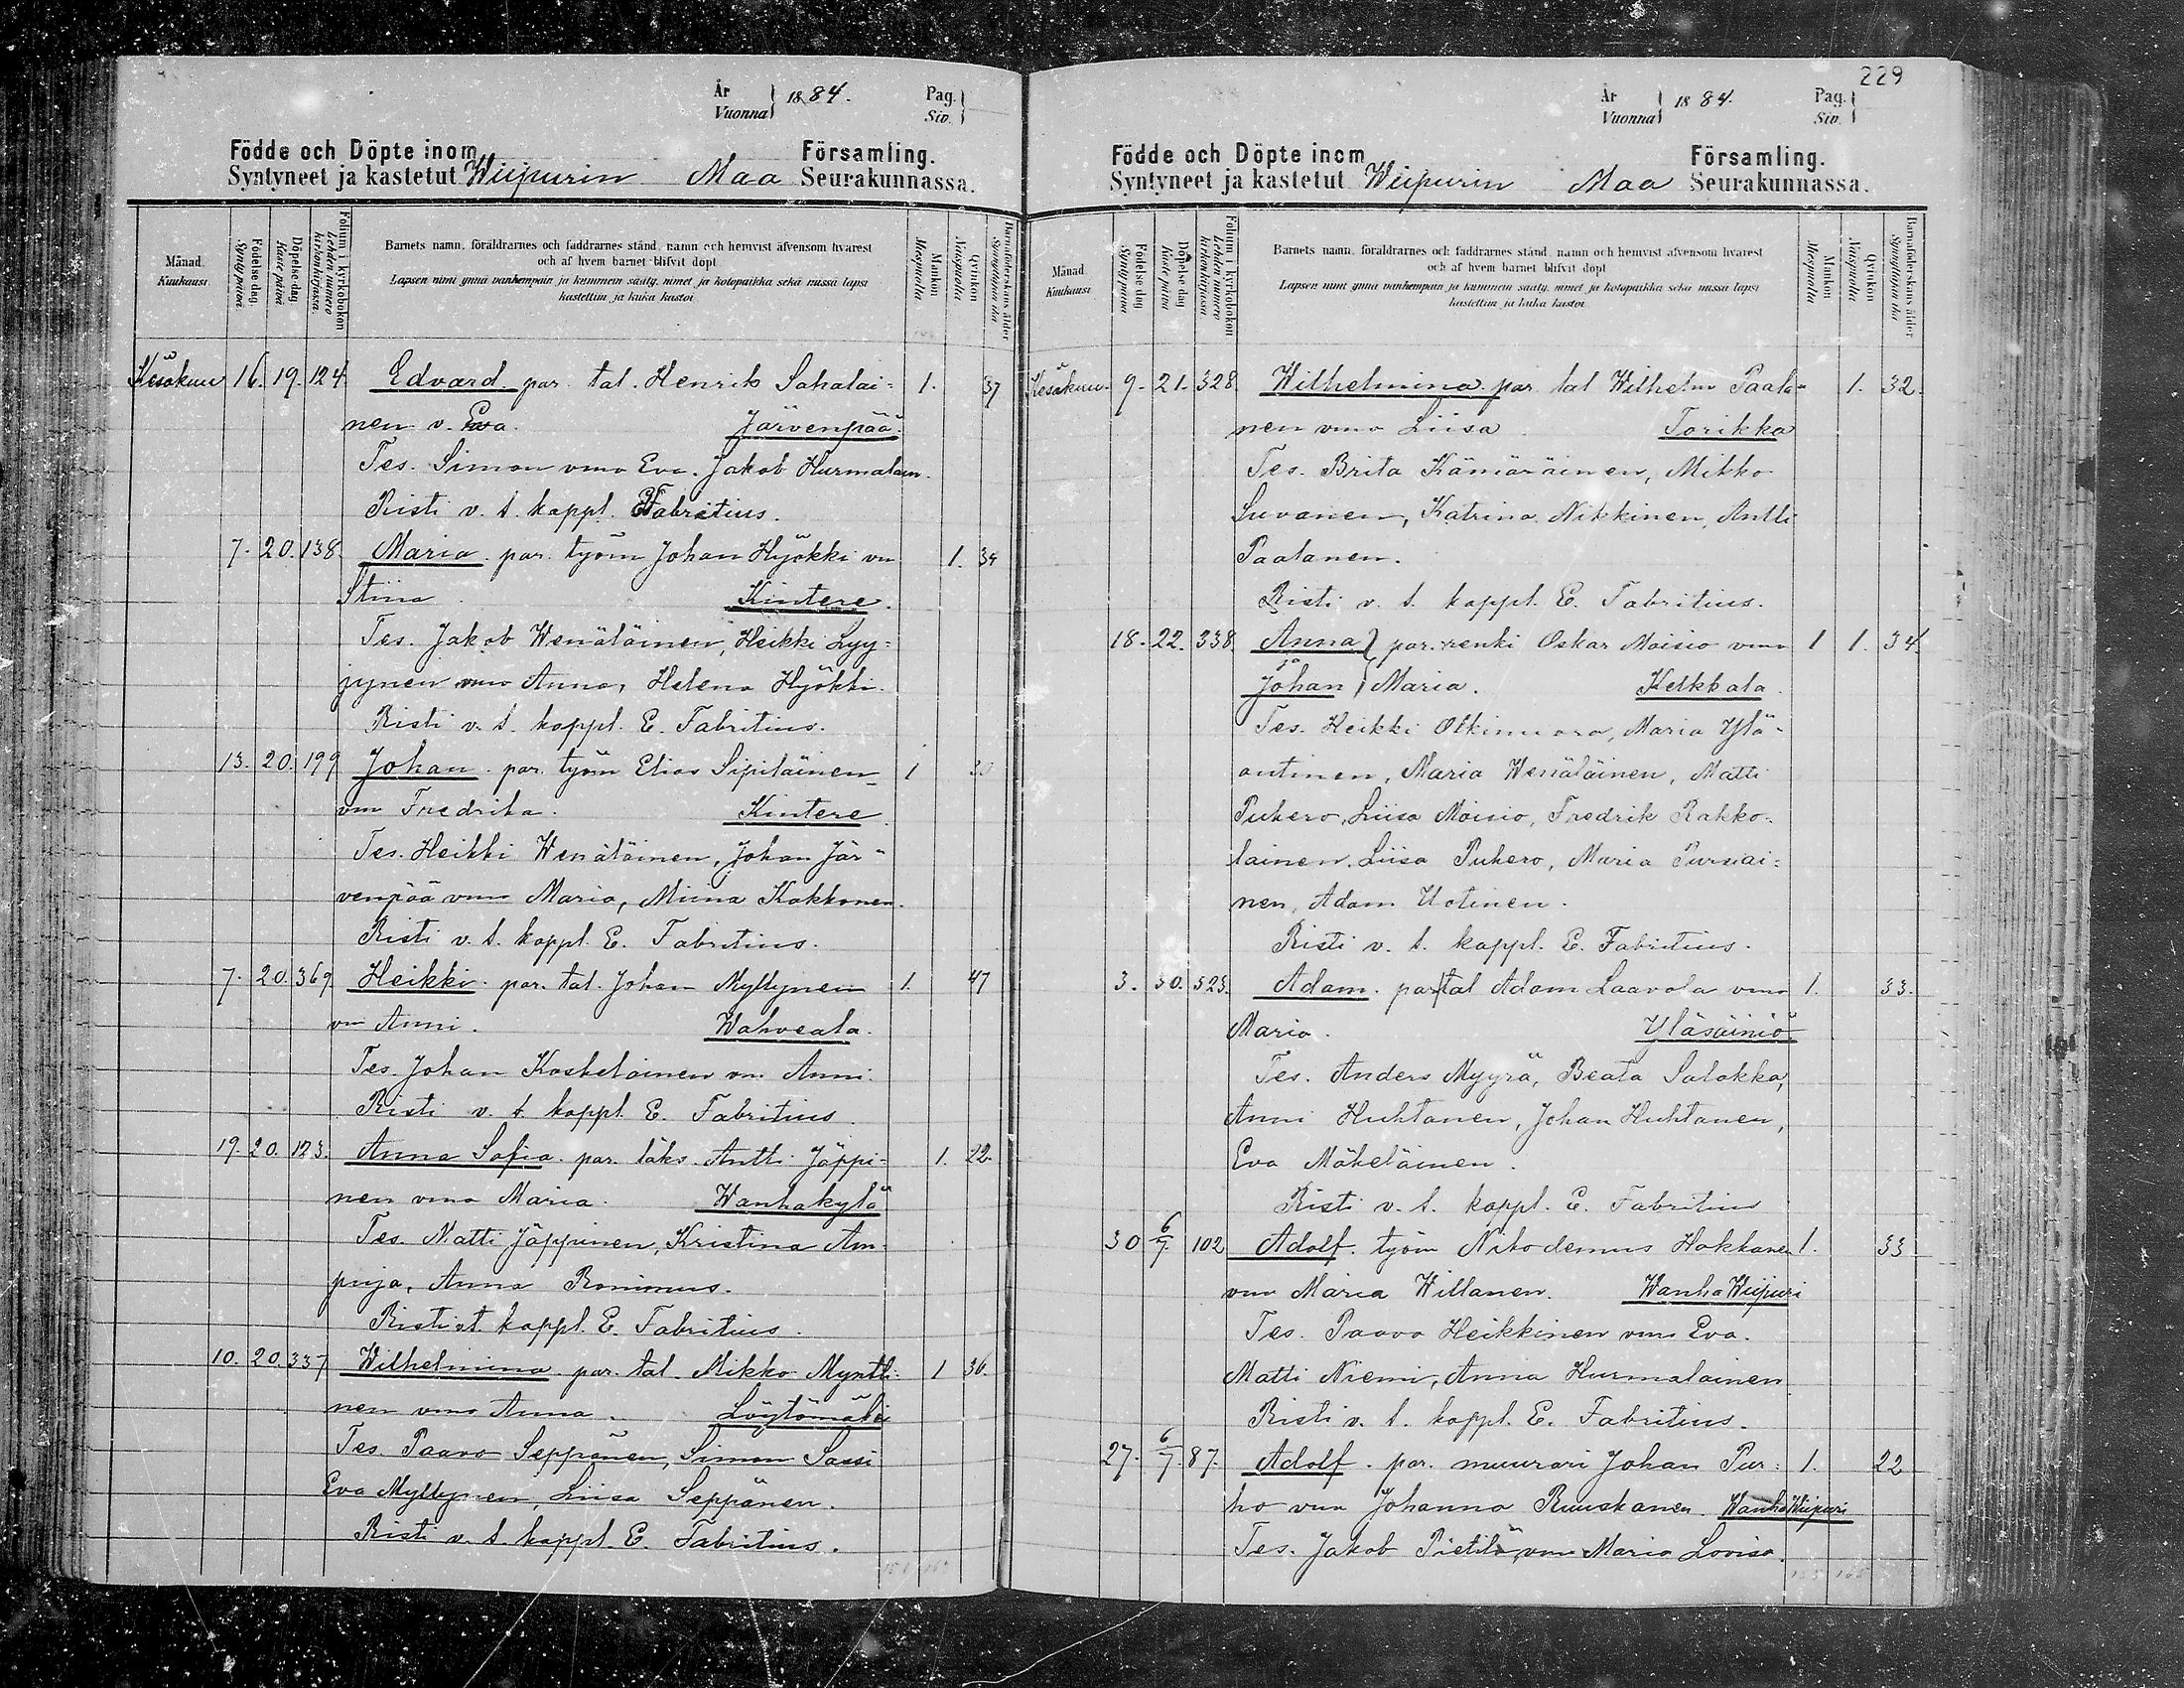 År
Vuonna 1884.
Pag.
Siv.
Födde och Döpte inom Församling.
Syntyneet ja kastetut Wiipurin Maa Seurakunnassa.
Månad
Kuukausi
Födelsedag
Syntypäivä
Döpelsedag
Kastepäivä
Folium i kyrkoboken
Lehden numero kirkonkirjassa.
Barnets namn, föräldrarnes och faddrarnes stånd, namn och hemvist äfvensom hvarest
och af hvem barnet blifvit döpt
Lapsen nimi ynnä vanhempain ja kummein sääty, nimet ja kotopaikka sekä missä lapsi
kastettiin ja kuka kastoi
Mankön
Miespuolia
Qvinkön
Naispuolia
Barnaföderskans ålder
Synnyttäjän ikä
Kesäkuu 16. 19. 124. Edvard. par. tal. Henrik Sahalai= 1. 37
nen v. Eva. Järvenpää.
Tes. Simon vmo Eva. Jakob Hurmalain.
Risti v. t. kappl. Fabritius.
7. 20. 138. Maria. par. työm Johan Hyökki vm 1. 34
Stiina Kintere.
Tes. Jakob Wenäläinen, Heikki Lyy=
jynen vmo Anna, Helena Hyökki.
Risti v. t. kappl. E. Fabritius.
13. 20. 199 Johan. par. työm Elias Sipiläinen 1 30
vm Fredrika. Kintere
Tes. Heikki Wenäläinen, Johan Jär=
venpää vmo Maria, Miina Kakkonen.
Risti v. t. kappl. E. Fabritius.
7. 20. 369 Heikki. par. tal. Johan Myllynen 1. 47
vm Anni. Wahveala.
Tes. Johan Koskelainen vm Anni.
Risti v. t. kappl. E. Fabritius.
19. 20. 123. Anna Sofia. par. läks. Antti Jäppi= 1. 22.
nen vmo Maria. Wanhakylä
Tes. Matti Jäppinen, Kristina Am=
puja, Anna Ronimus.
Risti vt. kappl. E. Fabritius.
10. 20. 337 Wilhelmina. par. tal. Mikko Myntti= 1 36.
nen vmo Anna. Löytömäki
Tes. Paavo Seppänen, Simon Sassi
Eva Myllynen, Liisa Seppänen.
Risti v. t. kappl. E. Fabritius.
229
År
Vuonna 1884.
Pag.
Siv.
Födde och Döpte inom Församling.
Syntyneet ja kastetut Wiipurin Maa Seurakunnassa.
Månad
Kuukausi
Födelsedag
Syntypäivä
Döpelsedag
Kastepäivä
Folium i kyrkoboken
Lehden numero kirkonkirjassa.
Barnets namn, föräldrarnes och faddrarnes stånd, namn och hemvist äfvensom hvarest
och af hvem barnet blifvit döpt
Lapsen nimi ynnä vanhempain ja kummein sääty, nimet ja kotopaikka sekä missä lapsi
kastettiin ja kuka kastoi
Mankön
Miespuolia
Qvinkön
Naispuolia
Barnaföderskans ålder
Synnyttäjän ikä
Kesäkuu. 9. 21. 328. Wilhelmina. par. tal Wilhelm Paala= 1. 32.
nen vmo Liisa Torikka
Tes. Brita Kämäräinen, Mikko
Suvanen, Katrina Nikkinen, Antti
Paalanen.
Risti v. t. kappl. E. Fabritius.
18. 22. 338. Anna } par. renki Oskar Moisio vmo 1 1. 34
ja
Johan } Maria. Kelkkala.
Tes. Heikki Olkinuora, Maria Ylä=
outinen, Maria Wenäläinen, Matti
Puhero, Liisa Moisio, Fredrik Rakko-
lainen, Liisa Puhero, Maria Pursiai=
nen, Adam Uotinen.
Risti v. t. kappl. E. Fabritius.
3. 30. 523. Adam. par tal Adam Laavola vmo 1. 33.
Maria. Yläsäiniö
Tes. Anders Myyrä, Beata Salokka,
Anni Huhtanen, Johan Huhtanen,
Eva Mäkeläinen.
Risti v. t. kappl. E. Fabritius
30 6/7. 102 Adolf. työm Nikodemus Hakkanen 1. 33
vm Maria Willanen. Wanha Wiipuri
Tes. Paavo Heikkinen vmo Eva.
Matti Niemi, Anna Hurmalainen.
Risti v. t. kappl. E. Fabritius.
27. 6/7. 87. Adolf. par. muurari Johan Pur= 1. 22
ho vm Johanna Ruuskanen. Wanha Wiipuri
Tes. Jakob Pietilä, vm Maria Lovisa.